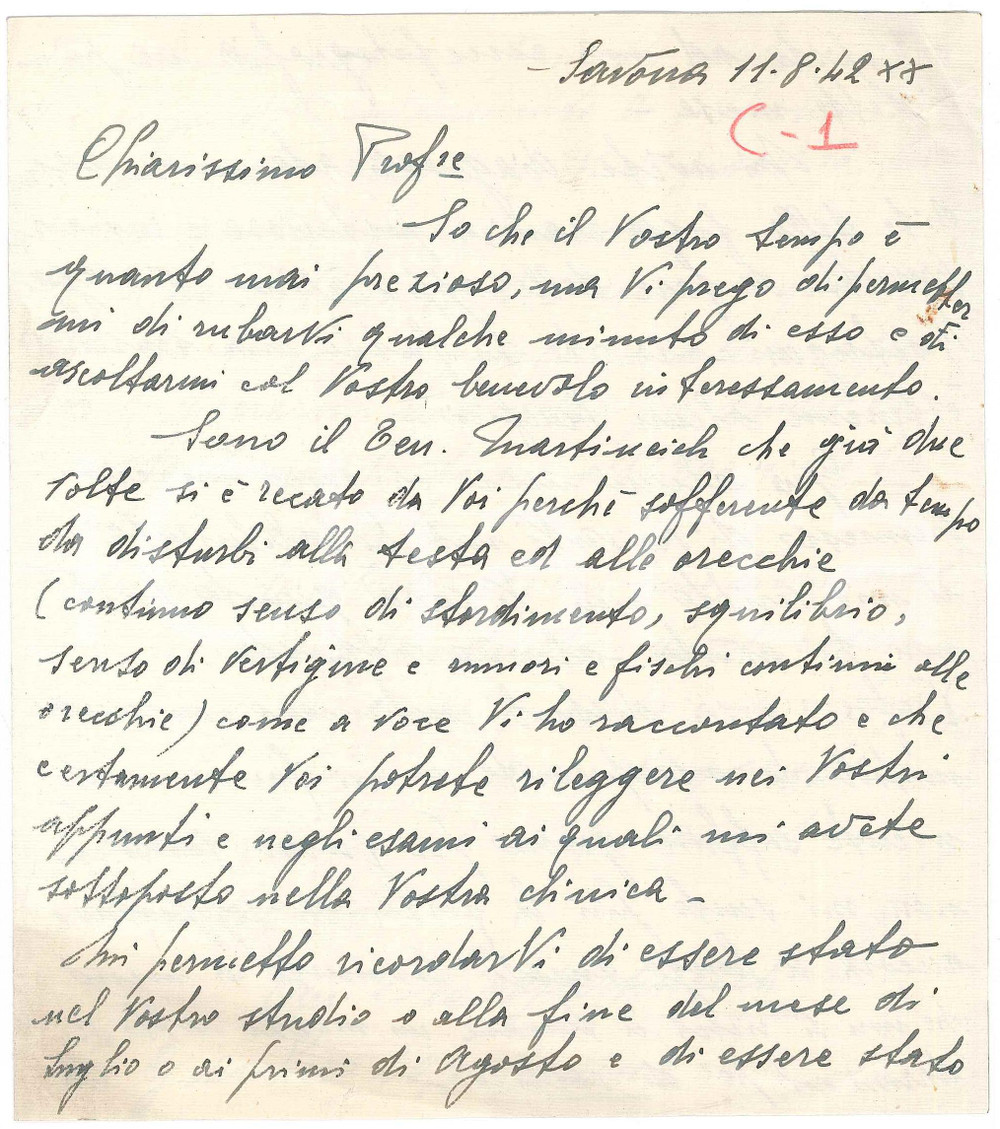 - Savona 11.8.42 XX
C-1
Chiarissimo Profre
So che il Vostro tempo è
quanto mai prezioso, ma Vi prego di permetter
mi di rubarVi qualche minuto di esso e di
ascoltarmi col Vostro benevolo interessamento.
Sono il Ten. Martineich che già due
volte si è recato da Voi perchè sofferente da tempo
da disturbi alla testa ed alle orecchie
(continuo senso di stordimento, squilibrio,
senso di vertigine e rumori e fischi continui alle
orecchie) come a voce Vi ho raccontato e che
certamente Voi potrete rileggere nei Vostri
appunti e negli esami ai quali mi avete
sottoposto nella Vostra clinica -
Mi permetto ricordarVi di essere stato
nel Vostro studio o alla fine del mese di
Luglio o ai primi di Agosto e di essere stato